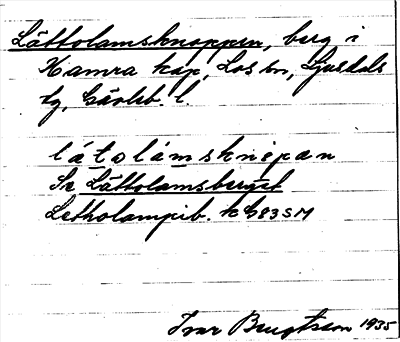 Låttolamsknoppen, berg i
Hamra kap, Los sn, Ljusdals
tg, Gävleb. l.
låtolámsknəpan
Se Låttolamsberget
Letholampib. k G83SM
Ivar Bengtsson 1935